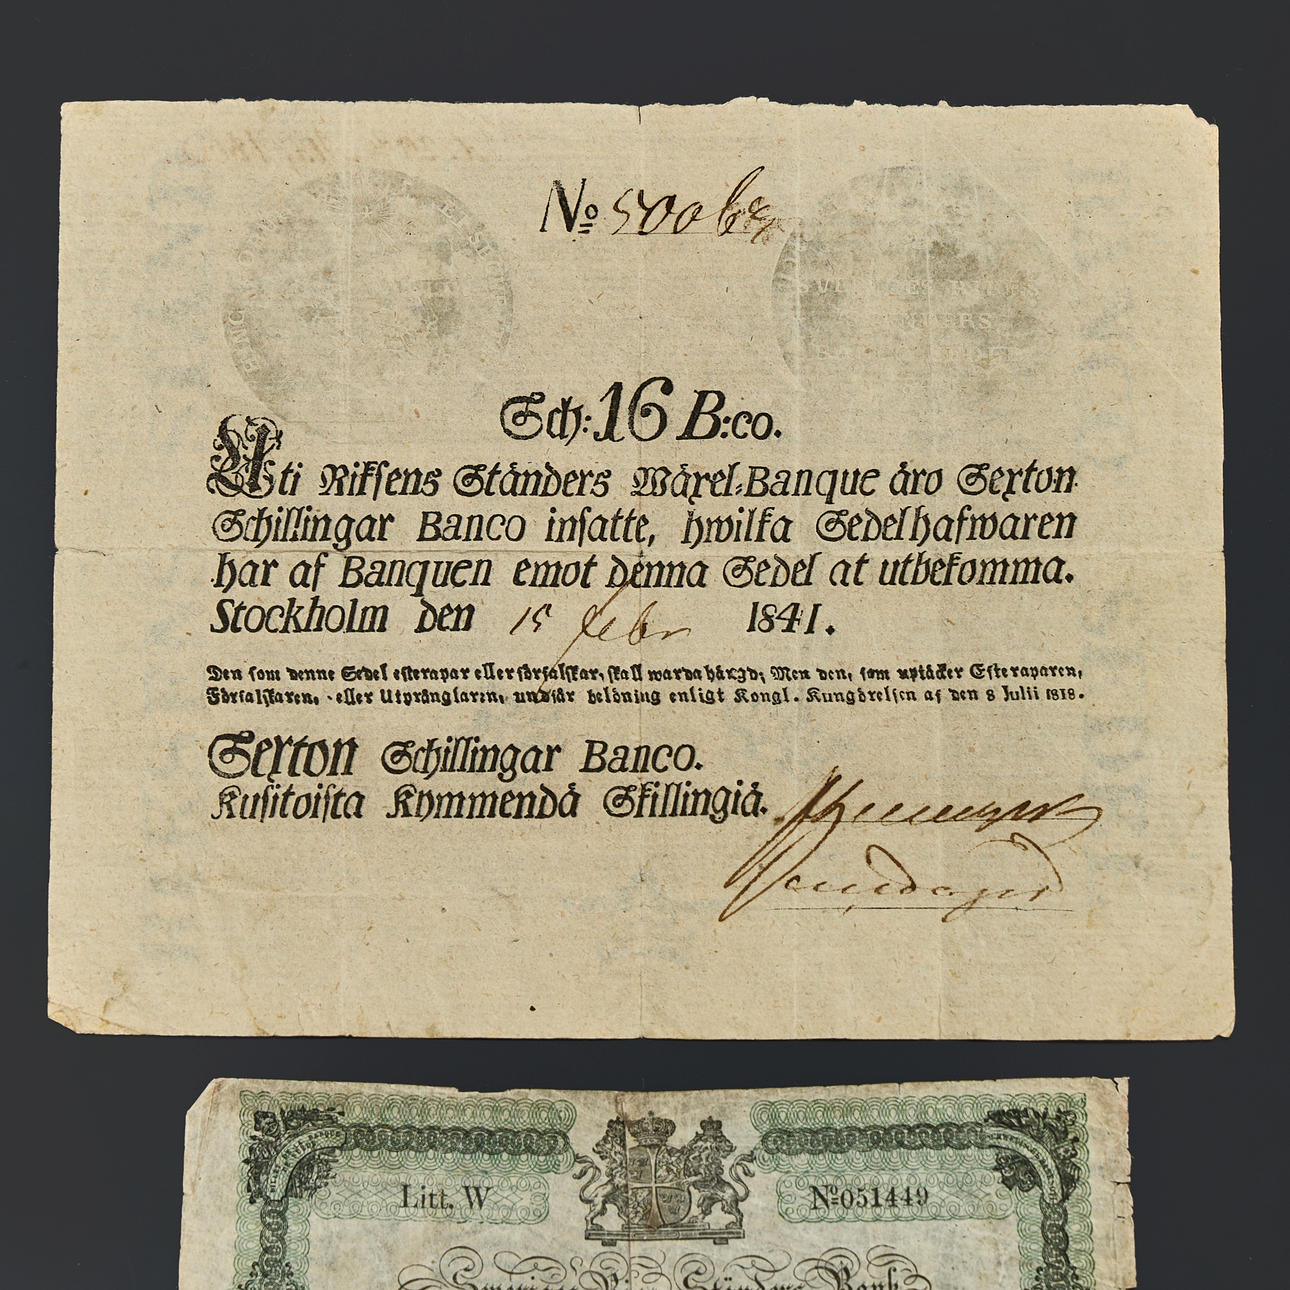 No 50068
Sch: 16 B:co.
Uti Riksens Ständers Wäxel-Banque äro Sexton
Schillingar Banco insatte, hwilka Sedelhafwaren
har af Banquen emot denna Sedel at utbekomma.
Stockholm den 15 Febr 1841.
Den som denne Sedel efterapar eller förfalskar, skall warda hängd; Men den, som uptäcker Efteraparen,
Förfalskaren, eller Utprånglaren, undfår belöning enligt Kongl. Kungörelsen af den 8 Julii 1818.
Sexton Schillingar Banco.
Kusitoista Kymmendä Skillingiä.
Litt. W
No 051449
Sweriges Rikes Ständers Bank